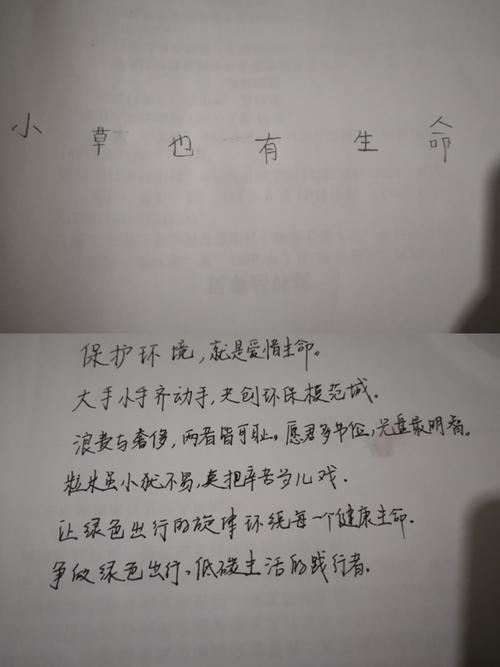 小草也有生命
保护环境，就是爱惜生命。
大手小手齐动手，共创环保模范城．
浪费与奢侈，两者皆可耻。愿君多节俭，光盘最明智。
粒米虽小犹不易，莫把辛苦当儿戏．
让绿色出行的旋律环绕每一个健康生命．
争做绿色出行、低碳生活的践行者．